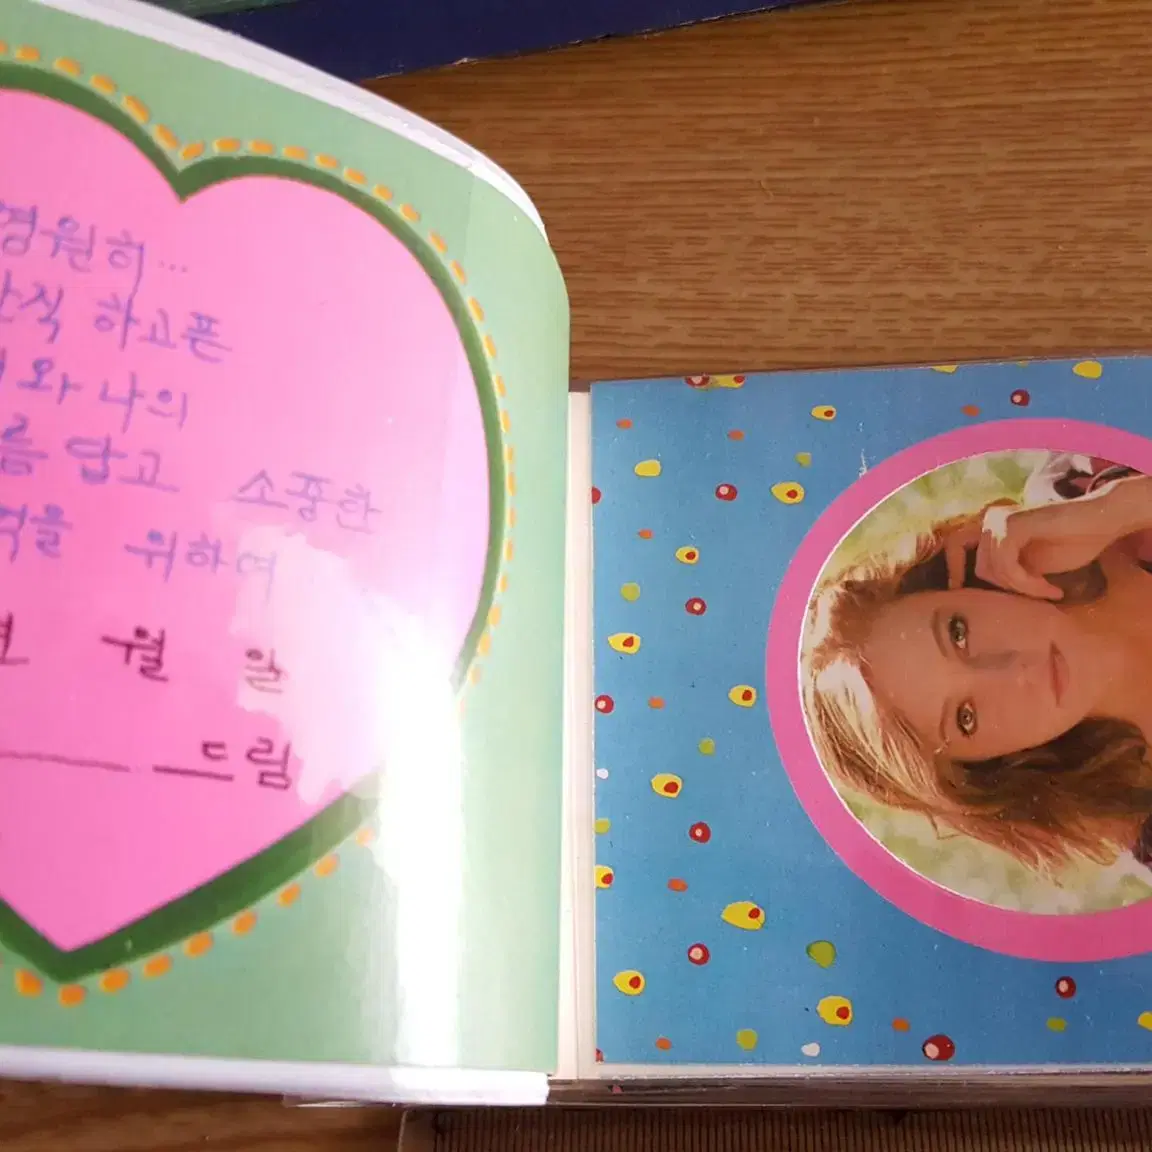 영원히...
간직 하고픈
와 나의
름답고 소중한
억을 위하여
년 월 일
드림